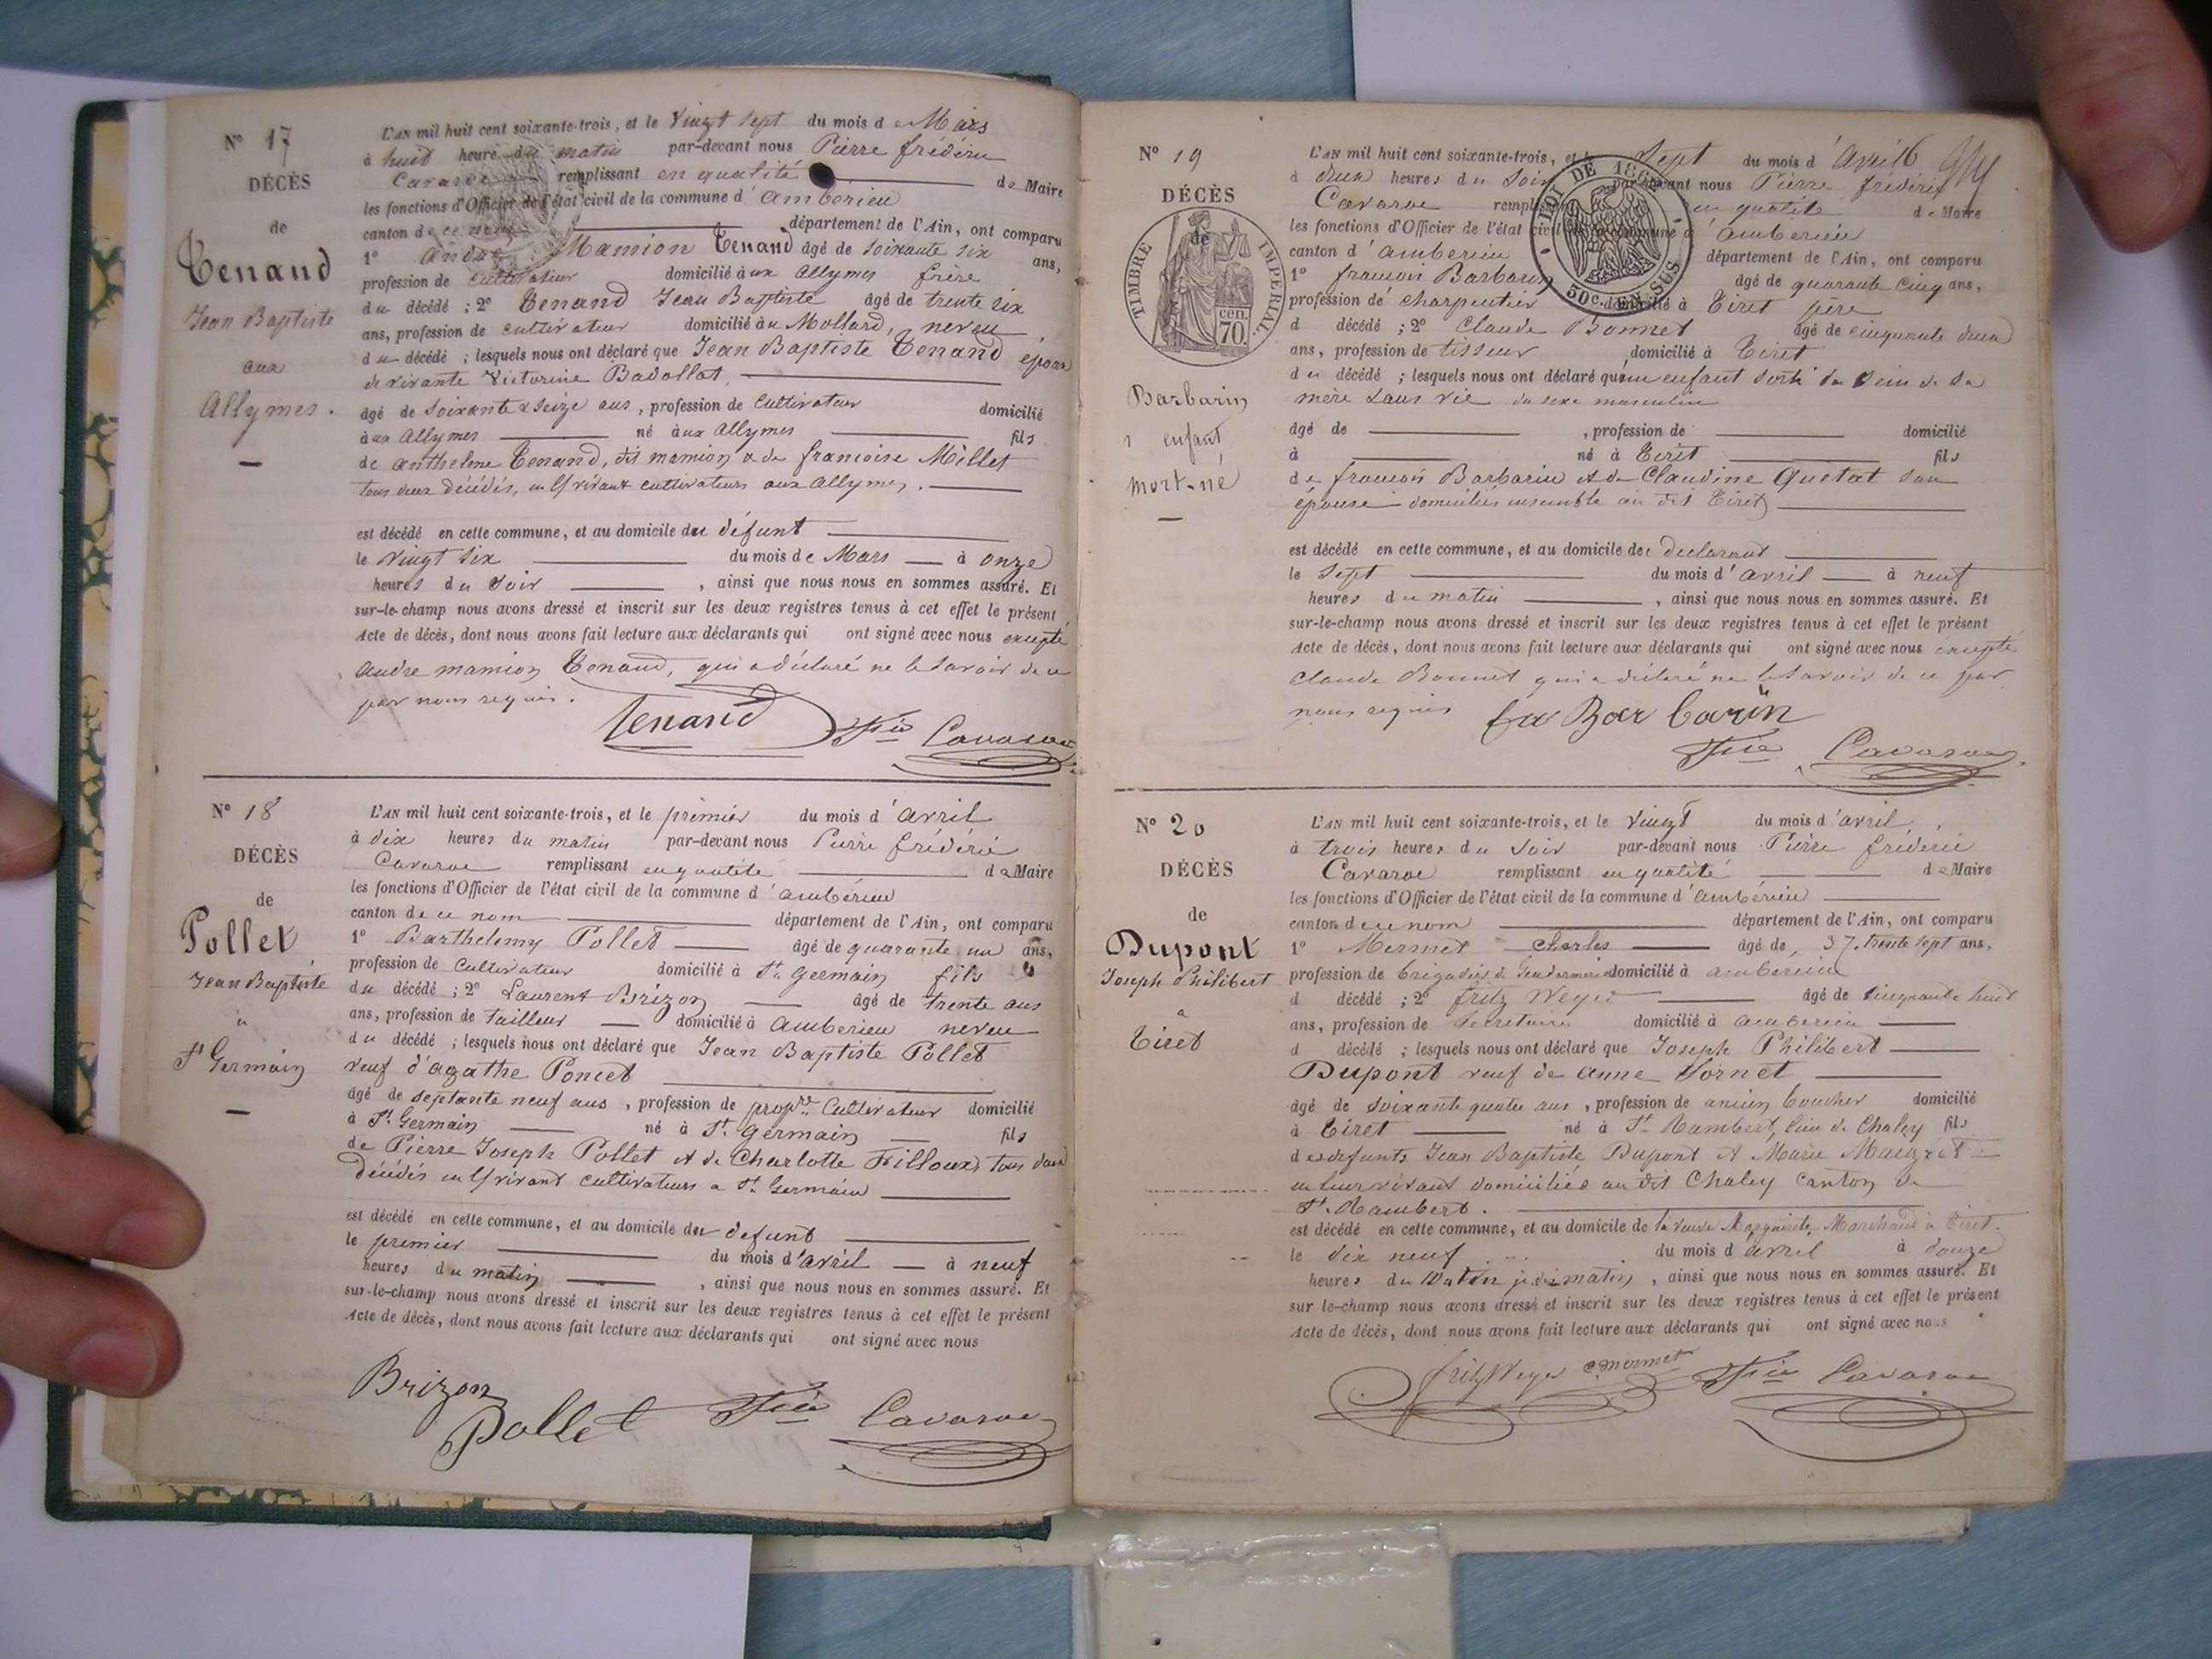 N° 17
DÉCÈS
de
Tenand
Jean Baptiste
aux
Allymes.
L'AN mil huit cent soixante-trois, et le Vingt sept du mois de Mars
à huit heure du matin par-devant nous Pierre frédéric
Cavaroc remplissant en qualité de Maire
les fonctions d'Officier de l'état civil de la commune d'ambérieu
canton de ce nom département de l'Ain, ont comparu
1° andré Mamion Tenand âgé de soixante six ans,
profession de cultivateur domicilié aux allymes frère
du décédé ; 2° Tenand Jean Baptiste âgé de trente six
ans, profession de cultivateur domicilié au Mollard, neveu
du décédé ; lesquels nous ont déclaré que Jean Baptiste Tenand époux
de vivante Victorine Badollat,
âgé de soixante & seize ans, profession de Cultivateur domicilié
aux allymes né aux allymes fils
de anthelme Tenand, dit mamion & de francoise Millet
tous deux décédés, en l/ vivant cultivateurs aux allymes.
est décédé en cette commune, et au domicile du défunt
le vingt six du mois de Mars à onze
heures du soir , ainsi que nous nous en sommes assuré. Et
sur-le-champ nous avons dressé et inscrit sur les deux registres tenus à cet effet le présent
Acte de décès, dont nous avons fait lecture aux déclarants qui ont signé avec nous excepté
andré mamion Tenand, qui a déclaré ne le savoir de ce
par nous requis.
Tenand Fric Cavaroc
N° 18
DÉCÈS
de
Pollet
Jean Baptiste
à
St Germain
L'AN mil huit cent soixante-trois, et le premier du mois d'avril
à dix heures du matin par-devant nous Pierre frédéric
Cavaroc remplissant en qualité de Maire
les fonctions d'Officier de l'état civil de la commune d'ambérieu
canton de ce nom département de l'Ain, ont comparu
1° Barthelemy Pollet âgé de quarante un ans,
profession de Cultivateur domicilié à St germain fils
du décédé ; 2° Laurent Brizon âgé de trente ans
ans, profession de tailleur domicilié à amberieu neveu
du décédé ; lesquels nous ont déclaré que Jean Baptiste Pollet
veuf d'agathe Poncet
âgé de septante neuf ans, profession de propre Cultivateur domicilié
à St. Germain né à St. germain fils
de Pierre Joseph Pollet et de Charlotte Filloux, tous deux
décédés en l/ vivant cultivateurs a St. Germain
est décédé en cette commune, et au domicile du defunt
le premier du mois d'avril à neuf
heures du matin , ainsi que nous nous en sommes assuré. Et
sur-le-champ nous avons dressé et inscrit sur les deux registres tenus à cet effet le présent
Acte de décès, dont nous avons fait lecture aux déclarants qui ont signé avec nous
Brizon
Pollet Fric Cavaroc
N° 19
DÉCÈS
de
TIMBRE IMPERIAL
70 cen.
Barbarin
1 enfant
mort-né
LOI DE 1862
50c. EN SUS
L'AN mil huit cent soixante-trois, et le Sept du mois d'avril
à deux heures du soir par-devant nous Pierre frédéric
Cavaroc remplissant en qualité de Maire
les fonctions d'Officier de l'état civil de la commune d'amberieu
canton d'amberieu département de l'Ain, ont comparu
1° francois Barbarin âgé de quarante cinq ans,
profession de charpentier domicilié à Tiret père
d décédé ; 2° Claude Bonnet âgé de cinquante deux
ans, profession de tisseur domicilié à Tiret
du décédé ; lesquels nous ont déclaré qu'un enfant sorti du sein de sa
mère sans vie du sexe masculin
âgé de , profession de domicilié
à né à Tiret fils
de francois Barbarin et de Claudine Quetat son
épouse domiciliés ensemble au dit Tiret
est décédé en cette commune, et au domicile des declarant
le sept du mois d'avril à neuf
heures du matin , ainsi que nous nous en sommes assuré. Et
sur-le-champ nous avons dressé et inscrit sur les deux registres tenus à cet effet le présent
Acte de décès, dont nous avons fait lecture aux déclarants qui ont signé avec nous excepté
Claude Bonnet qui a déclaré ne le savoir de ce par
nous requis
Barbarin
Fric Cavaroc
N° 20
DÉCÈS
de
Dupont
Joseph Philibert
a
Tiret
L'AN mil huit cent soixante-trois, et le Vingt du mois d'avril
à trois heures du soir par-devant nous Pierre frédéric
Cavaroc remplissant en qualité de Maire
les fonctions d'Officier de l'état civil de la commune d'ambérieu
canton de ce nom département de l'Ain, ont comparu
1° Mermet Charles âgé de 37. trente sept ans,
profession de brigadier de Gendarmerie domicilié à amberieu
d décédé ; 2° fritz Weyer âgé de cinquante huit
ans, profession de Secretaire domicilié à amberieu
d décédé ; lesquels nous ont déclaré que Joseph Philibert
Dupont veuf de anne
âgé de soixante quatre ans, profession de ancien boucher domicilié
à Tiret né à St. Rambert, lieu de Chaley fils
des defunts Jean Baptiste Dupont et Marie
en leur vivant domiciliés au dit Chaley canton de
St. Rambert.
est décédé en cette commune, et au domicile de la veuve Marguerite Marchand à Tiret.
le dix neuf du mois d'avril à douze
heures du matin , ainsi que nous nous en sommes assuré. Et
sur-le-champ nous avons dressé et inscrit sur les deux registres tenus à cet effet le présent
Acte de décès, dont nous avons fait lecture aux déclarants qui ont signé avec nous
fritz Weyer C. mermet Fric Cavaroc